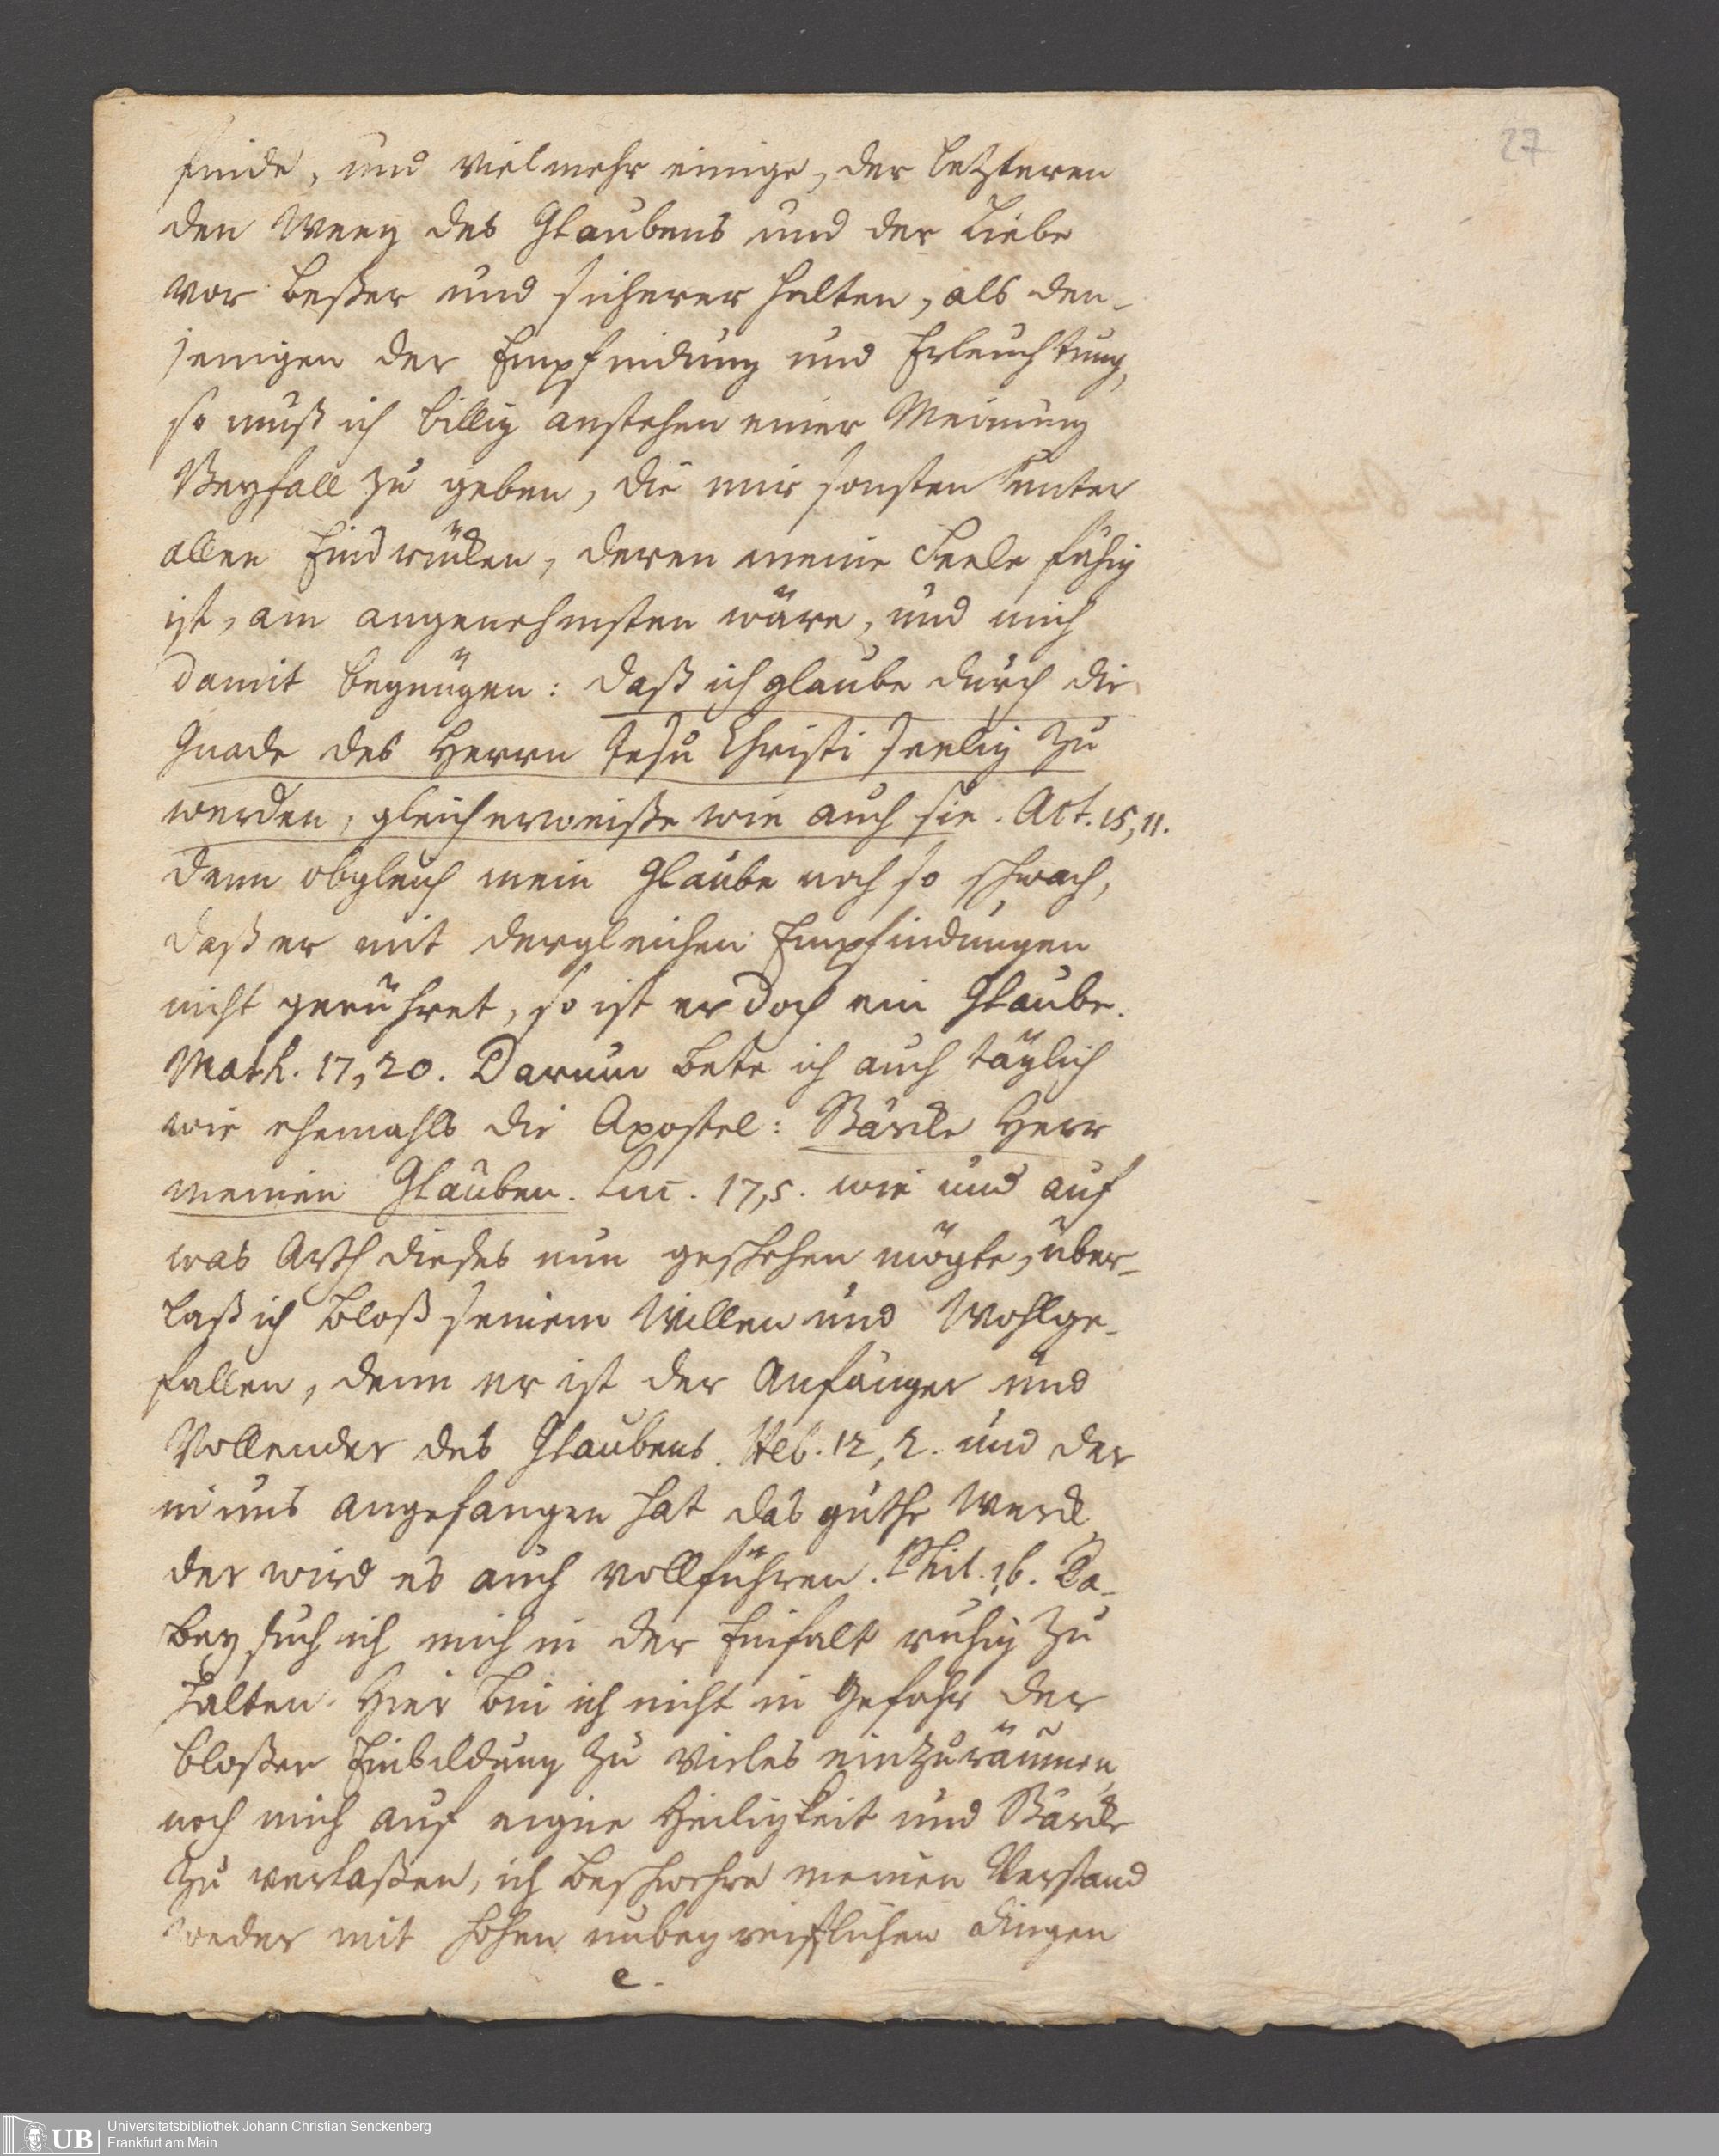 27
finde, und vielmehr einige, der letzteren
den Weeg des Glaubens und der Liebe
vor beßer und sicherer halten, als den-
jenigen der Empfindung und Erleuchtung,
so muß ich billig anstehen einer Meinung
Beyfall zu geben, die mir sonsten unter
allen Eindrücken, deren meine Seele fähig
ist, am angenehmsten wäre, und mich
damit begnügen: daß ich glaube durch die
Gnade des Herrn Jesu Christi seelig zu
werden, gleicherweiße wie auch sie. Act. 15, 11.
denn obgleich mein Glaube noch so schwach,
daß er mit dergleichen Empfindungen
nicht gerühret, so ist er doch ein Glaube.
Math. 17, 20. Darum bete ich auch täglich
wie ehemahls die Apostel: Stärcke Herr
meinen Glauben. Luc. 17, 5. wie und auf
was Arth dieses nun geschehen mögte, über-
laß ich bloß seinem Willen und Wohlge-
fallen, denn er ist der Anfänger und
Vollender des Glaubens. Heb. 12, 2. und der
in uns angefangen hat das guthe Werck
der wird es auch vollführen. Phil. 1, 6. Da-
bey such ich mich in der Einfalt ruhig zu
halten. Hier bin ich nicht in Gefahr der
bloßen Einbildung zu vieles einzuräumen,
noch mich auf eigne Heiligkeit und Stärcke
zu verlaßen, ich beschwehre meinen Verstand
weder mit hohen unbegreifflichen Dingen
e.
UB
Universitätsbibliothek Johann Christian Senckenberg
Frankfurt am Main